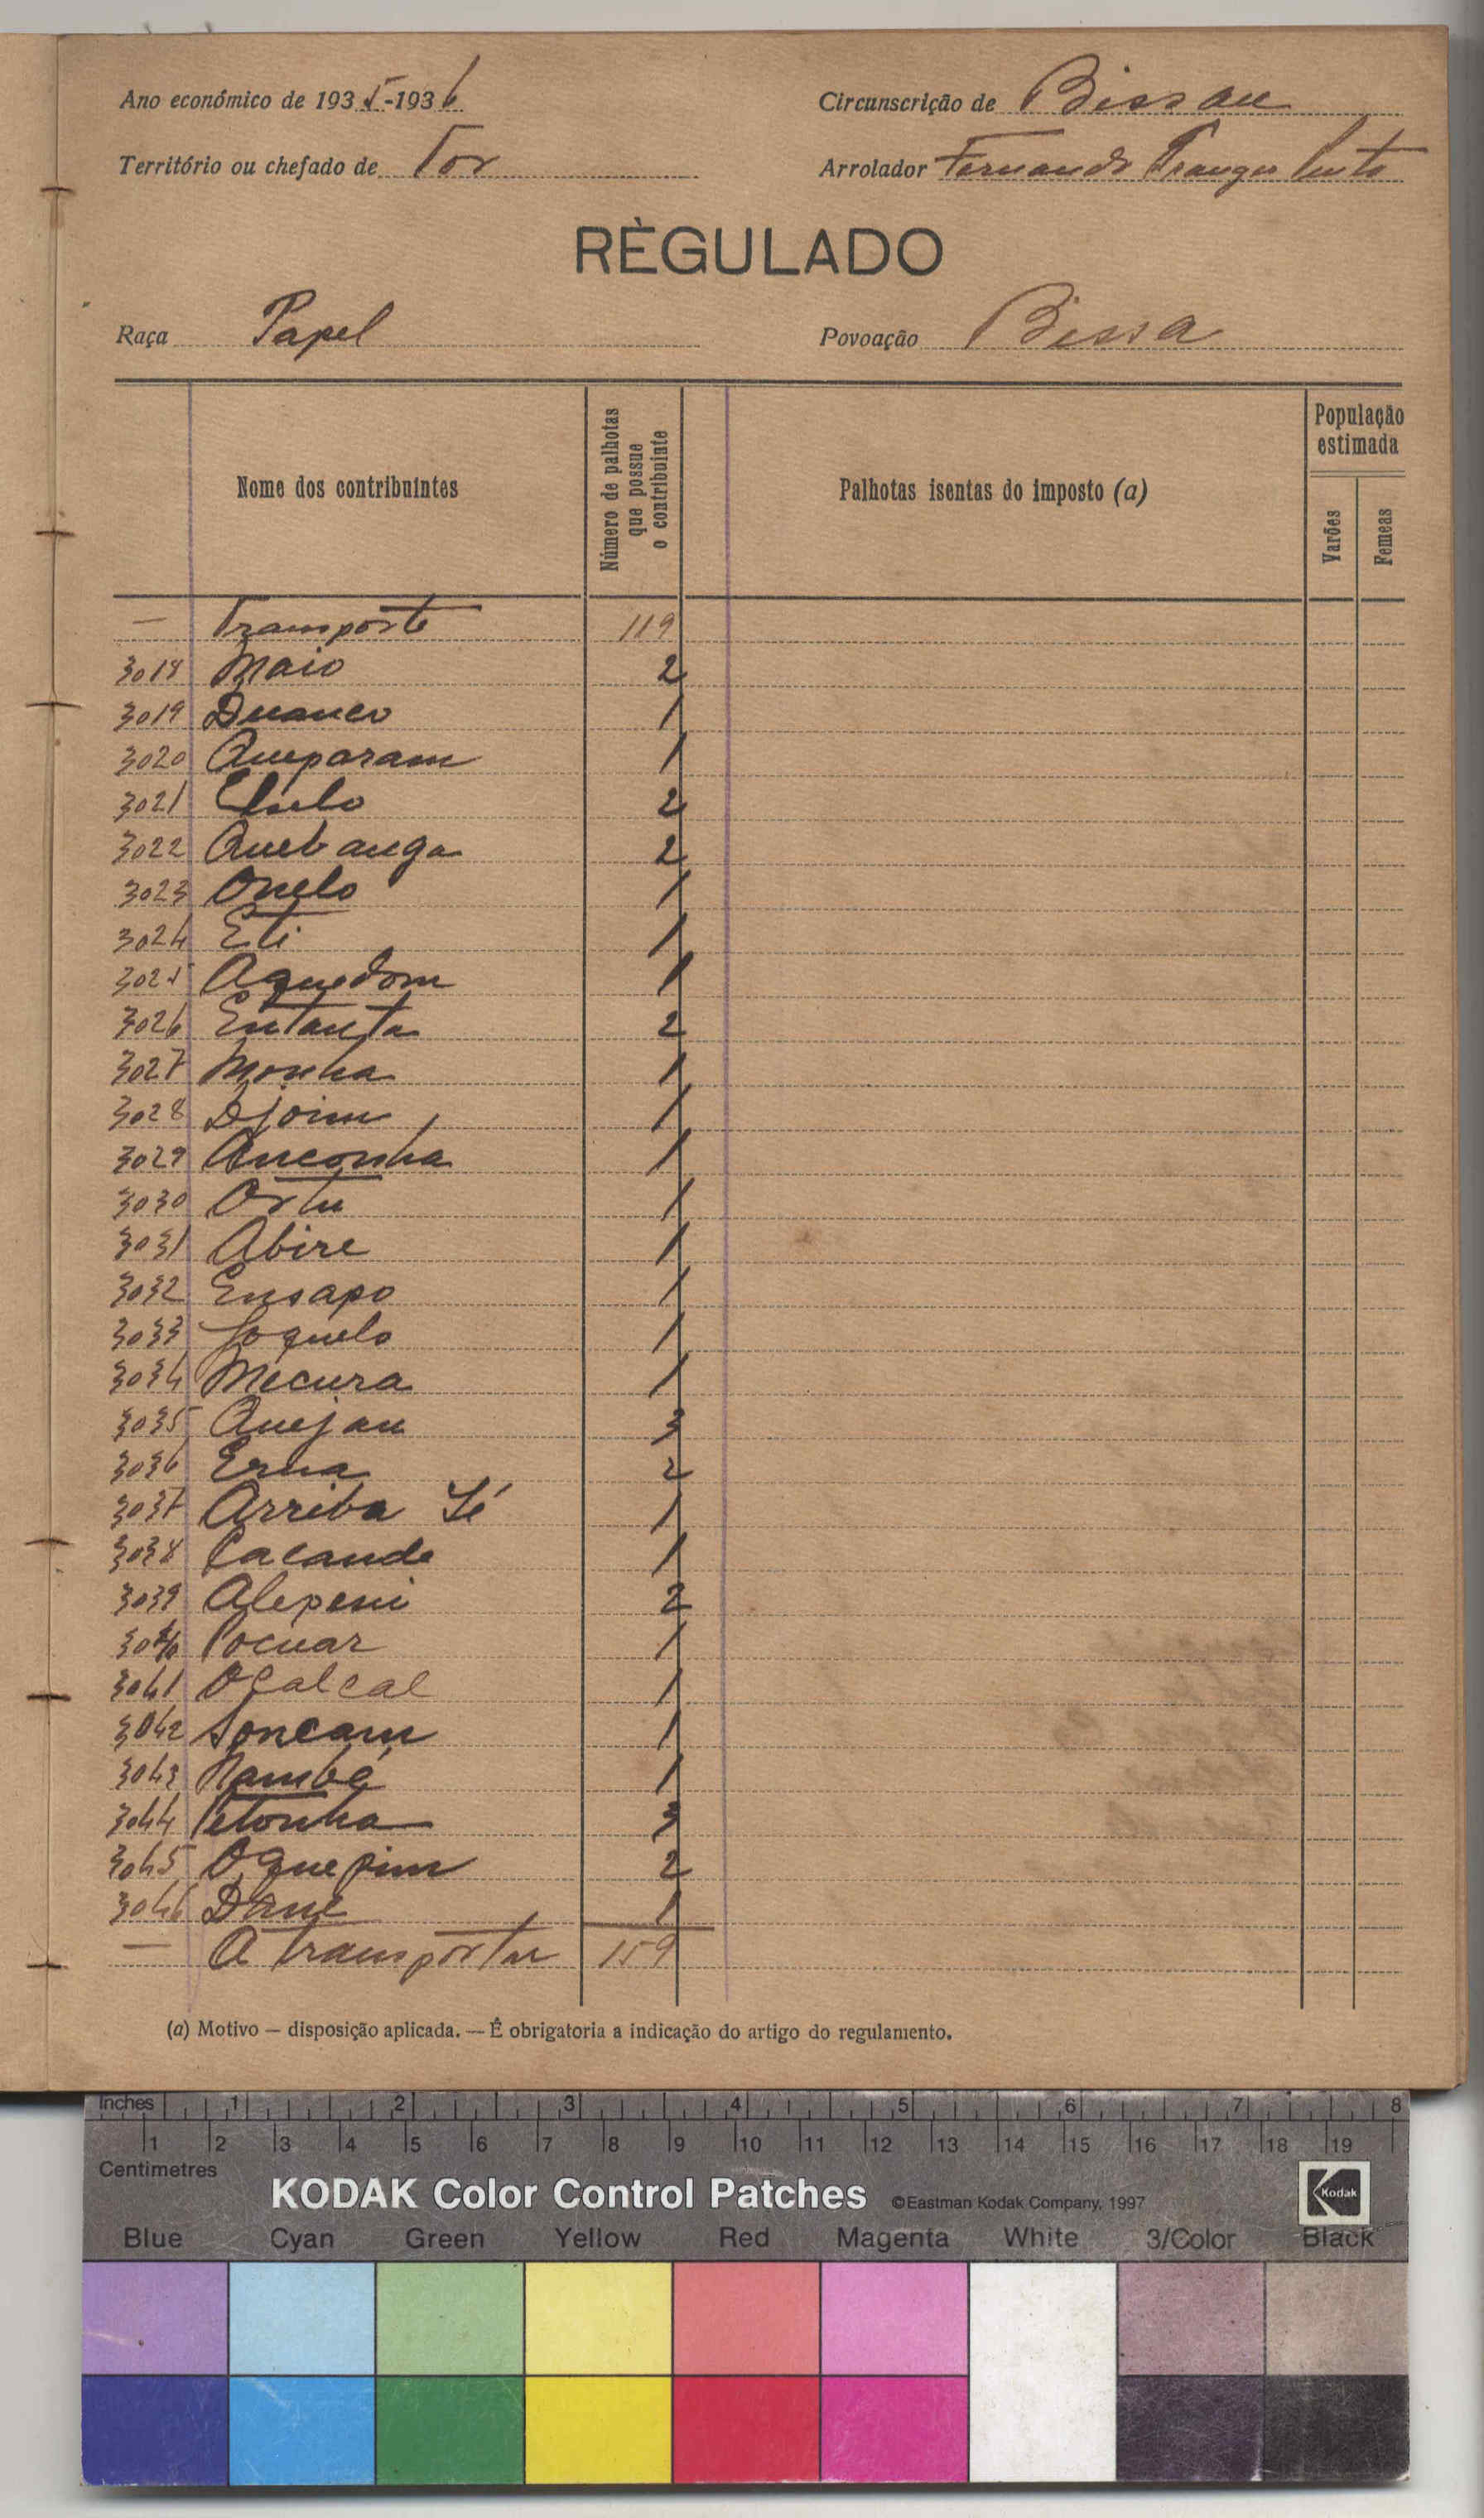 Ano económico de 1935-1936
Circunscrição de Bissau
Território ou chefado de Tor
Arrolador Fernando
RÈGULADO
Raça Papel
Povoação Bissa
Nome dos contribuintes
Número de palhotas que possue o contribuinte
Palhotas isentas do imposto (a)
População estimada
Varões
Femeas
— Transporte 119
3018 Maio 2
3019 Duanco 1
3020 Queparam 1
3021 2
3022 Quebanga 2
3023 Onelo 1
3024 Eti 1
3025 Aquedom 1
3026 Entanta 2
3027 Monha 1
3028 Djoim 1
3029 Anconha 1
3030 Ortu 1
3031 Abire 1
3032 Ensapo 1
3033 Joquelo 1
3034 Mecura 1
3035 Quejau 3
3036 Erna 2
3037 Arriba Sé 1
3038 Cacande 1
3039 Alepeni 2
3040 Pocuar 1
3041 Oçalcal 1
3042 Soncam 1
3043 Nambé 1
3044 Petonha 3
3045 Oquepim 2
3046 1
— A transportar 159
(a) Motivo — disposição aplicada. — É obrigatoria a indicação do artigo do regulamento.
Inches 1 2 3 4 5 6 7 8
1 2 3 4 5 6 7 8 9 10 11 12 13 14 15 16 17 18 19
Centimetres
KODAK Color Control Patches ©Eastman Kodak Company, 1997 Kodak
Blue Cyan Green Yellow Red Magenta White 3/Color Black